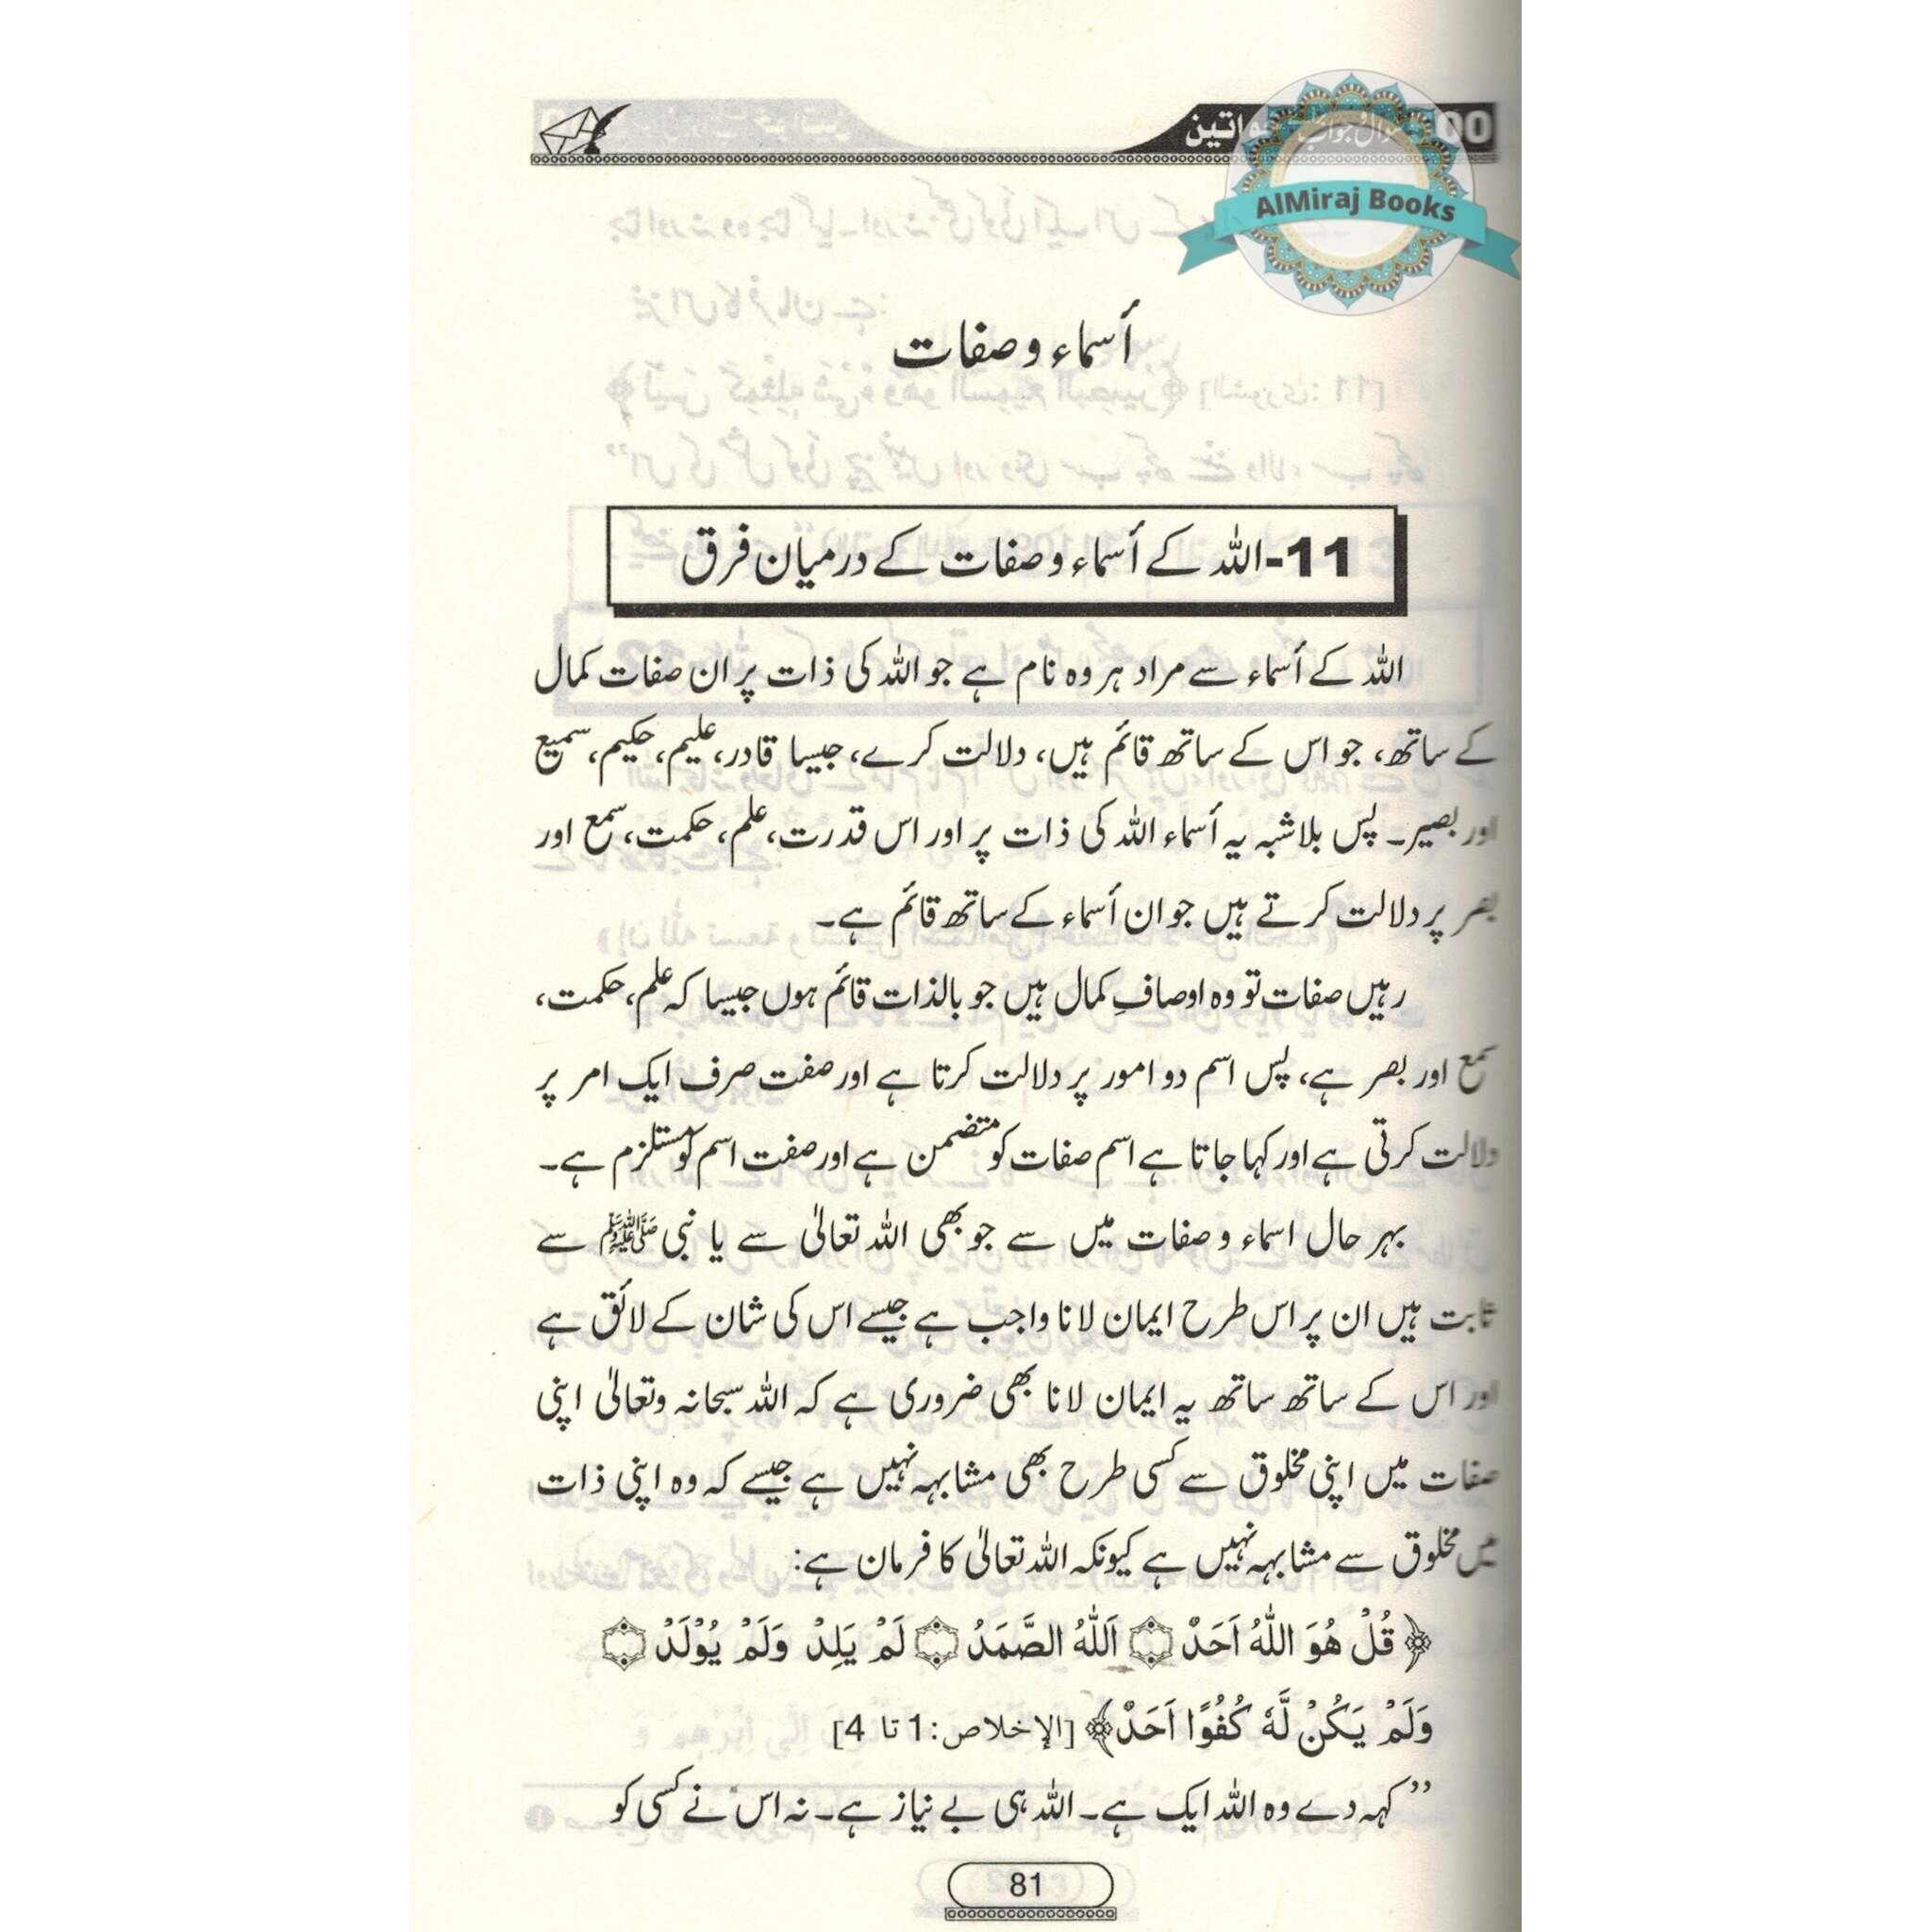 سوال جواب
AlMiraj Books
أسماء و صفات
11-اللہ کے أسماء و صفات کے درمیان فرق
اللہ کے أسماء سے مراد ہر وہ نام ہے جو اللہ کی ذات پر ان صفات کمال
کے ساتھ، جو اس کے ساتھ قائم ہیں، دلالت کرے، جیسا قادر، علیم، حکیم، سمیع
اور بصیر۔ پس بلاشبہ یہ أسماء اللہ کی ذات پر اور اس قدرت، علم، حکمت، سمع اور
بصر پر دلالت کرتے ہیں جو ان أسماء کے ساتھ قائم ہے۔
رہیں صفات تو وہ اوصافِ کمال ہیں جو بالذات قائم ہوں جیسا کہ علم، حکمت،
سمع اور بصر ہے، پس اسم دو امور پر دلالت کرتا ہے اور صفت صرف ایک امر پر
دلالت کرتی ہے اور کہا جاتا ہے اسم صفات کو متضمن ہے اور صفت اسم کو مستلزم ہے۔
بہر حال اسماء و صفات میں سے جو بھی اللہ تعالیٰ سے یا نبی ﷺ سے
ثابت ہیں ان پر اس طرح ایمان لانا واجب ہے جیسے اس کی شان کے لائق ہے
اور اس کے ساتھ ساتھ یہ ایمان لانا بھی ضروری ہے کہ اللہ سبحانہ وتعالیٰ اپنی
صفات میں اپنی مخلوق سے کسی طرح بھی مشابہہ نہیں ہے جیسے کہ وہ اپنی ذات
میں مخلوق سے مشابہہ نہیں ہے کیونکہ اللہ تعالیٰ کا فرمان ہے:
﴿قُلْ هُوَ اللّٰهُ اَحَدٌ ۝ اَللّٰهُ الصَّمَدُ ۝ لَمْ يَلِدْ وَلَمْ يُوْلَدْ ۝
وَلَمْ يَكُنْ لَّهٗ كُفُوًا اَحَدٌ﴾ [الإخلاص: 1 تا 4]
’’کہہ دے وہ اللہ ایک ہے۔ اللہ ہی بے نیاز ہے۔ نہ اس نے کسی کو
81